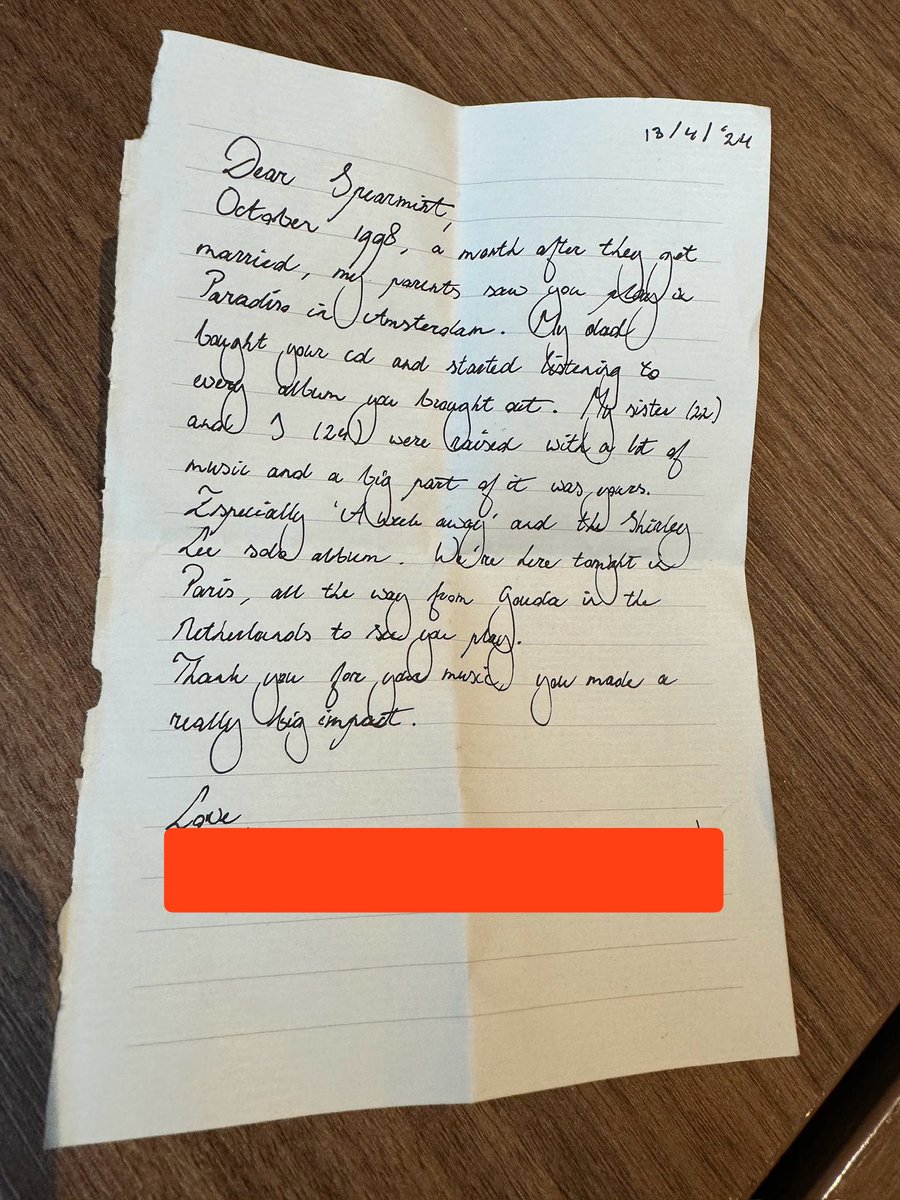 13/4/'24
Dear Spearmint,
October 1998, a month after they got
married, my parents saw you play in
Paradiso in Amsterdam. My dad
bought your cd and started listening to
every album you brought out. My sister (22)
and I (24) were raised with a lot of
music and a big part of it was yours.
Especially 'A week away' and the Shirley
Lee solo album. We're here tonight in
Paris, all the way from Gouda in the
Netherlands to see you play.
Thank you for your music, you made a
really big impact.
Love,